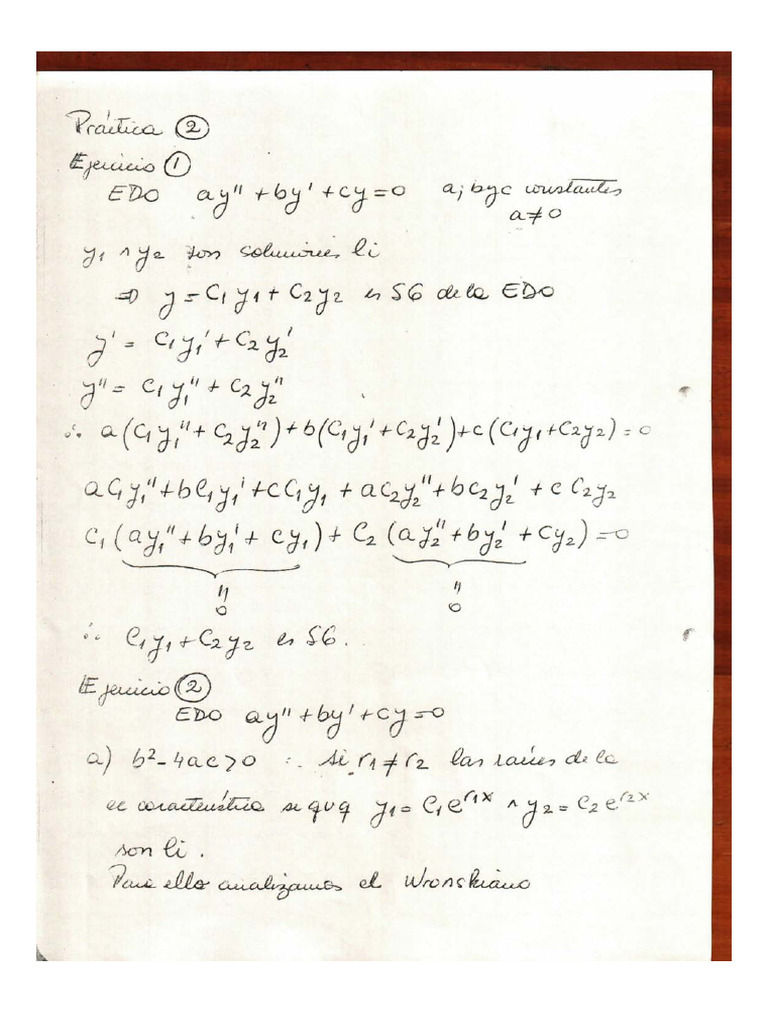 Práctica ②
Ejercicio ①
EDO ay'' + by' + cy = 0 a; b y c constantes
a ≠ 0
y₁ ∧ y₂ son soluciones li
⇒ y = C₁y₁ + C₂y₂ es SG de la EDO
y' = C₁y₁' + C₂y₂'
y'' = C₁y₁'' + C₂y₂''
∴ a(C₁y₁'' + C₂y₂'') + b(C₁y₁' + C₂y₂') + c(C₁y₁ + C₂y₂) = 0
aC₁y₁'' + bC₁y₁' + cC₁y₁ + aC₂y₂'' + bC₂y₂' + cC₂y₂
C₁(ay₁'' + by₁' + cy₁) + C₂(ay₂'' + by₂' + cy₂) = 0
" "
0 0
∴ C₁y₁ + C₂y₂ es SG.
Ejercicio ②
EDO ay'' + by' + cy = 0
a) b² - 4ac > 0 ∴ si r₁ ≠ r₂ las raíces de la
ec característica se qvq y₁ = C₁e^{r₁x} ∧ y₂ = C₂e^{r₂x}
son li.
Para ello analizamos el Wronskiano